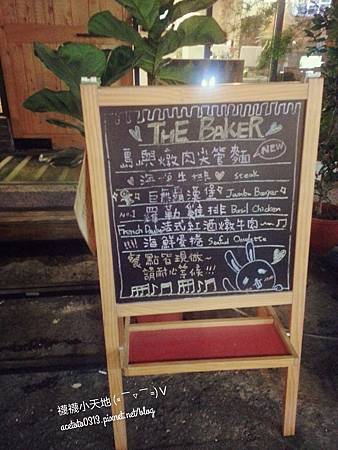 THE BAKER
燉肉尖管麵 NEW
steak
漢堡 Jumbo Burger
No.1 雞排 Basil Chicken
French Daube 法式紅酒燉牛肉~
!!!! 海鮮蛋捲 Seafood Omelette
餐點皆現做~
請耐心等候!!!
襪襪小天地(=￣▽￣=)V
acelsto0313.pixnet.net/blog